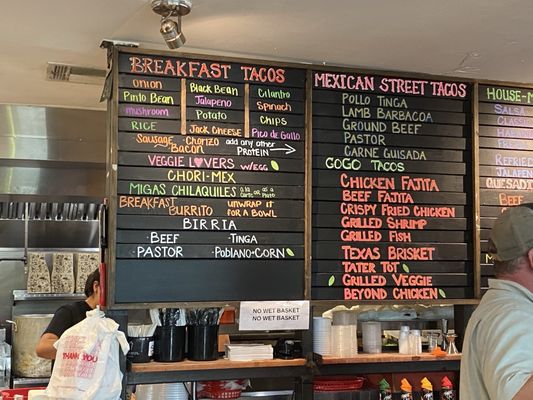 BREAKFAST TACOS
Onion
Black Bean
Cilantro
Pinto Bean
Jalapeno
Spinach
mushroom
Potato
CHIPS
RICE
Jack Cheese
Pico de Gallo
Sausage
Chorizo
Bacon
add any other
PROTEIN
VEGGIE LOVERS W/EGG
CHORI-MEX
MIGAS CHILAQUILES
BREAKFAST
BURRITO
UNWRAP IT
FOR A BOWL
BIRRIA
·BEEF
·TINGA
·PASTOR
·POBLANO-CORN
MEXICAN STREET TACOS
POLLO TINGA
LAMB BARBACOA
GROUND BEEF
PASTOR
CARNE GUISADA
GOGO TACOS
CHICKEN FAJITA
BEEF FAJITA
CRISPY FRIED CHICKEN
GRILLED SHRIMP
GRILLED FISH
TEXAS BRISKET
TATER TOT
GRILLED VEGGIE
BEYOND CHICKEN
HOUSE-M
SALSA
CLASSIC
REFRIED
QUESADI
BEEF
NO WET BASKET
NO WET BASKET
THANK YOU